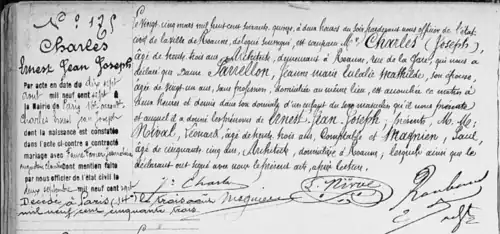 N° 125
Charles
Ernest Jean Joseph
Par acte en date du dix sept
août mil neuf cent sept
la Mairie de Paris
Charles Ernest Jean Joseph
dont la naissance est constatée
dans l'acte ci-contre a contracté
mariage avec
mention faite
par nous officier de l'état civil le
deux septembre mil neuf cent sept
Décédé à Paris (14e) le trois août
mil neuf cent cinquante trois
Le vingt cinq mars mil huit cent soixante quinze, à deux heures du soir, pardevant nous officier de l'état
civil de la ville de Roanne, délégué soussigné, est comparu Mr Charles (Joseph),
âgé de trente trois ans, Architecte, demeurant à Roanne, rue de la Paix, qui nous a
déclaré que Dame Sarrellon, Jeanne Marie Eulalie Mathilde, son épouse,
âgée de vingt un ans, sans profession, domiciliée au même lieu, est accouchée ce matin à
deux heures et demie dans son domicile d'un enfant du sexe masculin qu'il nous présente
et auquel il a donné les prénoms de Ernest Jean Joseph, présents, M.M.
Léonard, âgé de trente trois ans, Comptable et Magnien, Paul,
âgé de cinquante cinq ans, Architecte, domiciliés à Roanne, lesquels ainsi que le
déclarant ont signé avec nous le présent acte, après lecture.
Jh Charles
Magnien
Raubaud
adjt